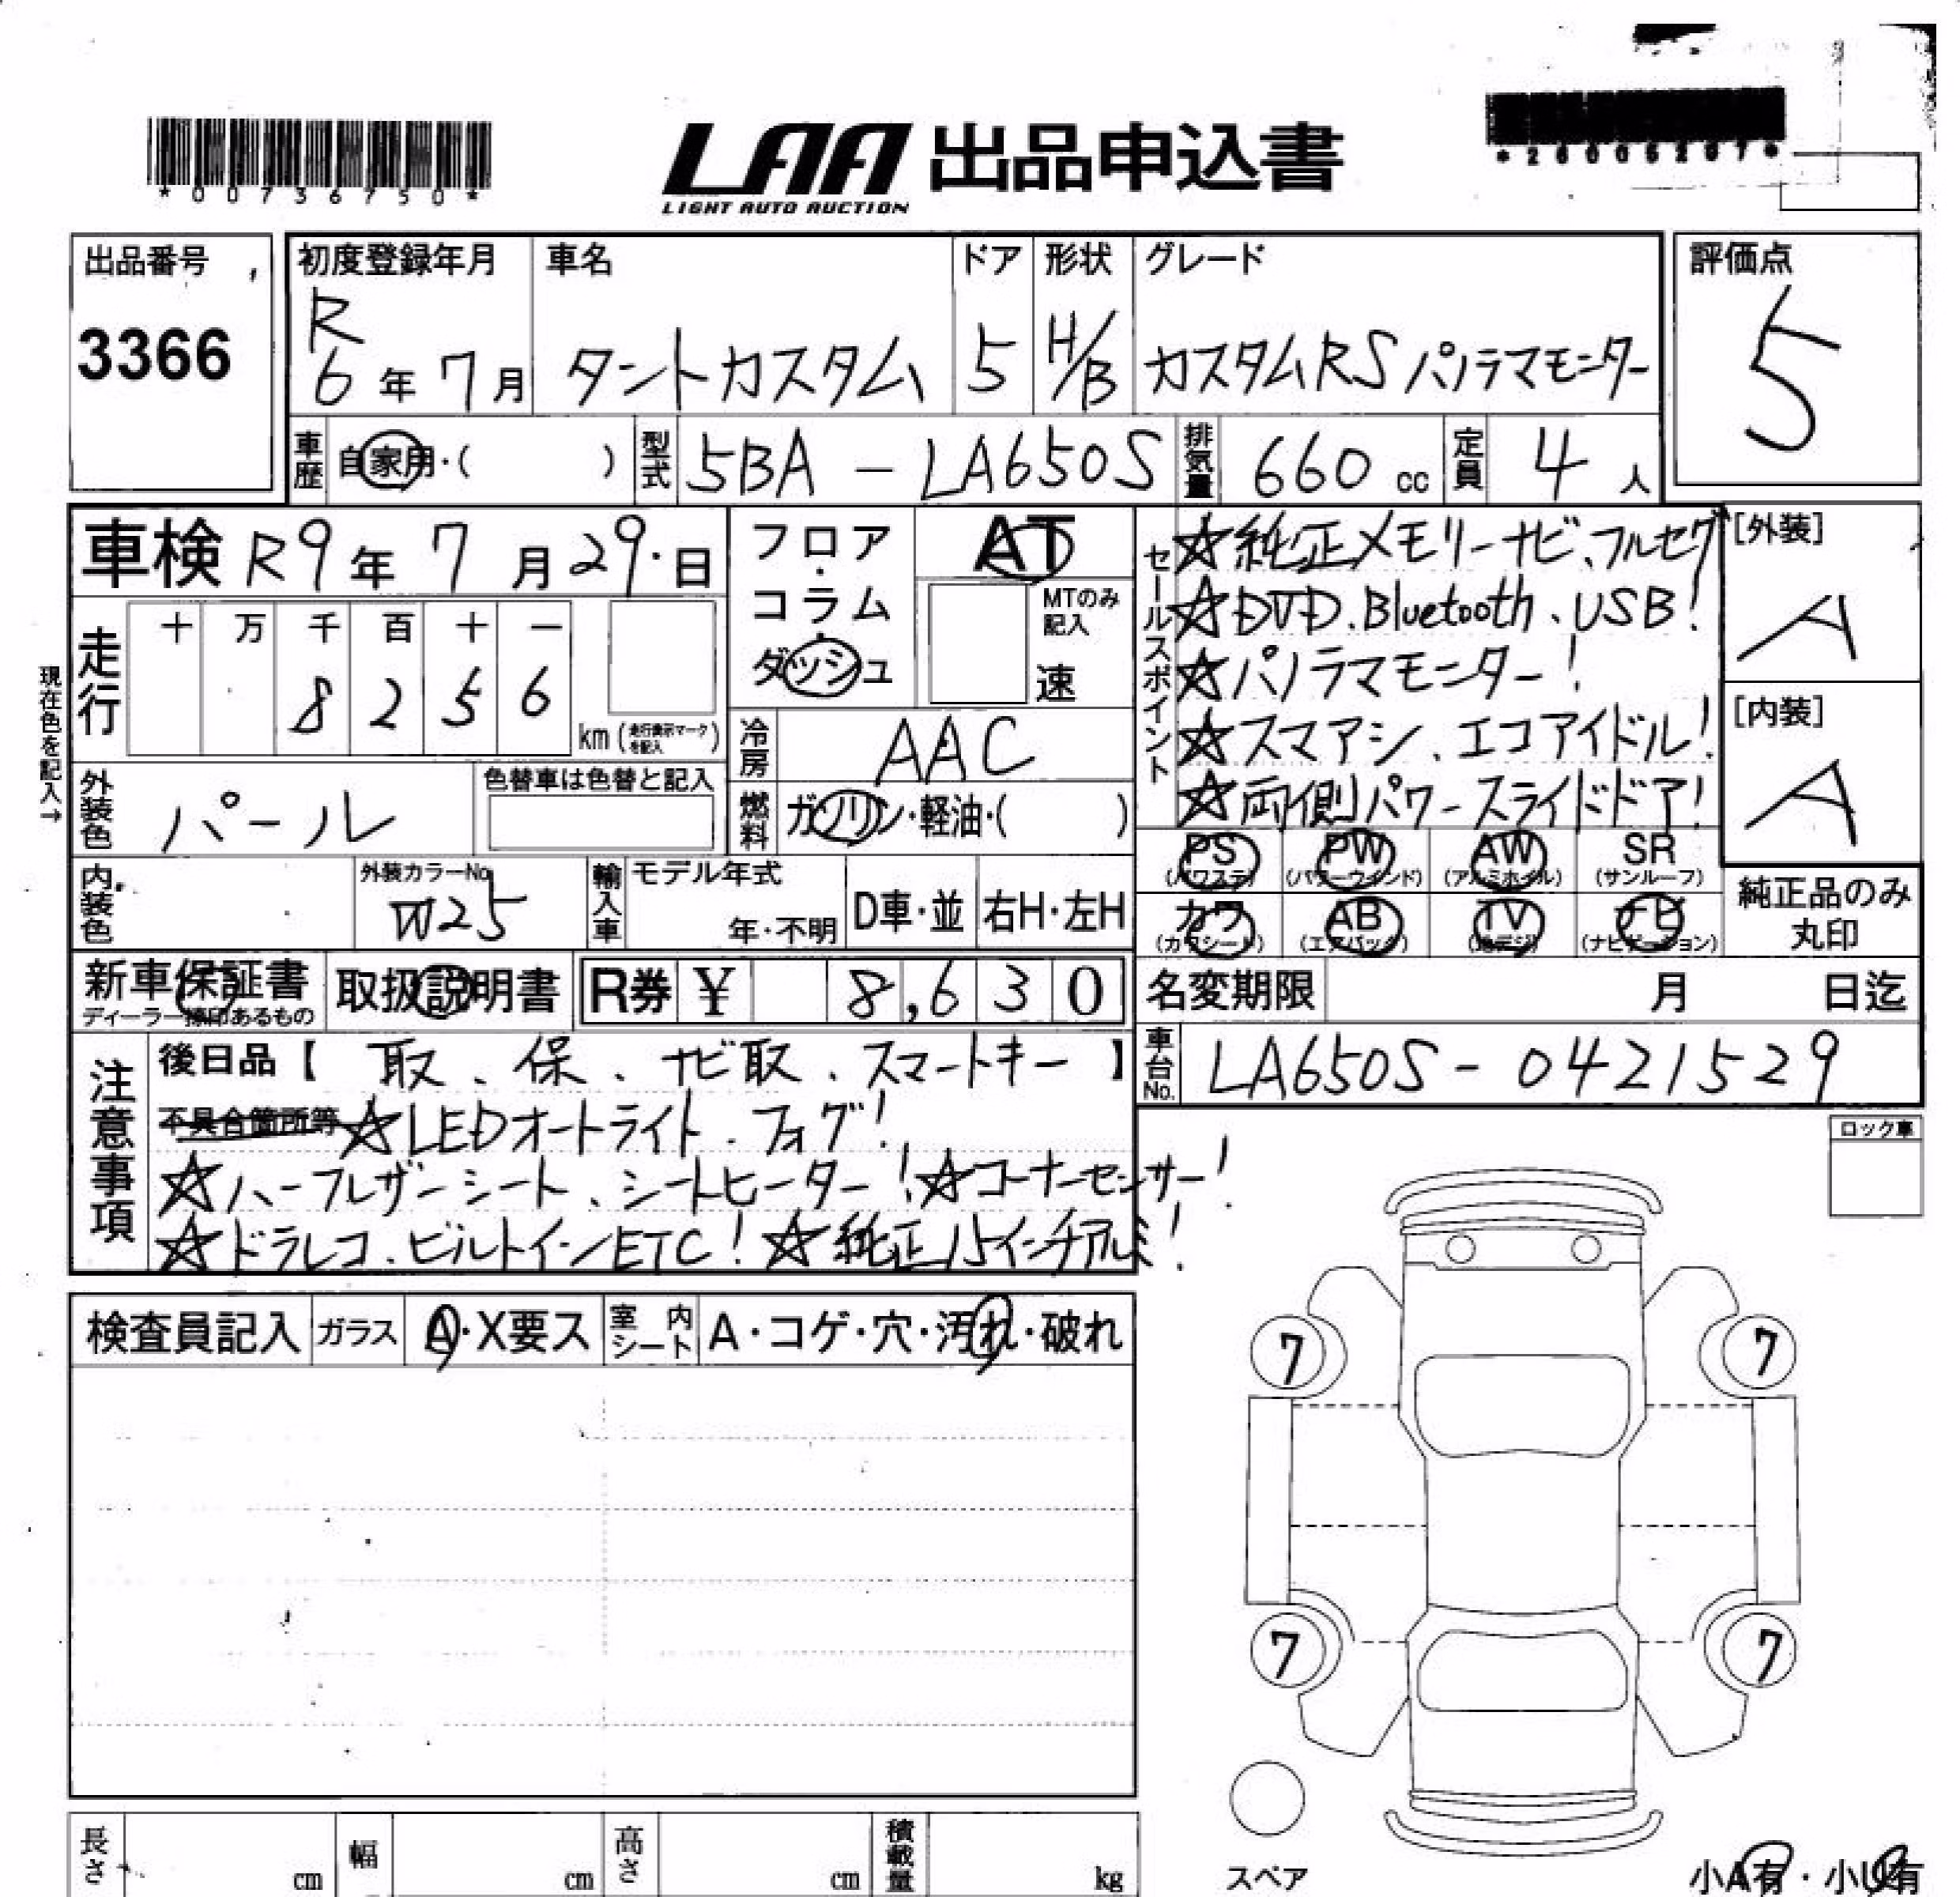 *00736750*
LAA 出品申込書
LIGHT AUTO AUCTION
*26005297*
出品番号
3366
初度登録年月
R
6年7月
車名
タントカスタム
ドア
5
形状
H/B
グレード
カスタムRS パノラマモニター
評価点
5
車歴
自家用・( )
型式
5BA - LA650S
排気量
660 cc
定員
4 人
車検 R9年7月29日
フロア
・
コラム
・
ダッシュ
AT
MTのみ
記入
速
セールスポイント
☆純正メモリーナビ、フルセグ
☆DVD、Bluetooth、USB!
☆パノラマモニター!
☆スマアシ、エコアイドル!
☆両側パワースライドドア!
[外装]
A
[内装]
A
現在色を記入→
走行
十 万 千 百 十 一
8 2 5 6
km(走行表示マークを記入)
冷房
AAC
外装色
パール
色替車は色替と記入
燃料
ガソリン・軽油・( )
PS
(パワステ)
PW
(パワーウインド)
AW
(アルミホイル)
SR
(サンルーフ)
内装色
外装カラーNo.
W25
輸入車
モデル年式
年・不明
D車・並
右H・左H
カワ
(カワシート)
AB
(エアバック)
TV
(地デジ)
ナビ
(ナビゲーション)
純正品のみ
丸印
新車保証書
ディーラー捺印あるもの
取扱説明書
R券 ¥ 8,630
名変期限 月 日迄
車台No.
LA650S - 0421529
注意事項
後日品【 取、保、ナビ取、スマートキー 】
不具合箇所等 ☆LEDオートライト、フォグ!
☆ハーフレザーシート、シートヒーター!☆コーナーセンサー!
☆ドラレコ、ビルトインETC!☆純正15インチアルミ!
ロック車
検査員記入
ガラス
A・X要ス
室内
シート
A・コゲ・穴・汚れ・破れ
7
7
7
7
スペア
長さ
cm
幅
cm
高さ
cm
積載量
kg
小A有・小U有